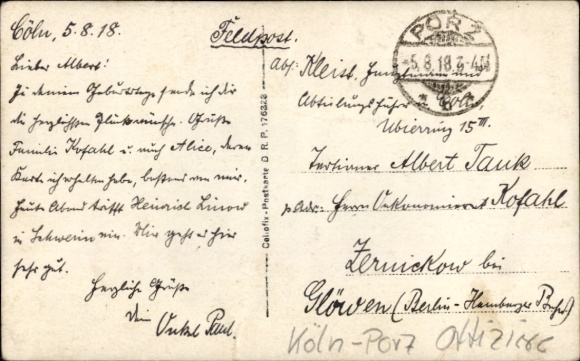 Cöln, 5.8.18.
Lieber Albert!
Zu deinem Geburtstage sende ich dir
die herzlichsten Glückwünsche. Grüße
Familie Kofahl u. auch Alice, deren
Karte ich erhalten habe, bestens von mir.
Heute Abend trifft Heinrich Linow
in Schwerin ein. Mir geht es hier
sehr gut.
Herzliche Grüße
Dein
Onkel Paul.
Cellofix-Postkarte D.R.P. 176323
Feldpost.
PORZ
5.8.18.3-4N
Abs: Kleist, Hauptmann und
Abteilungsführer
Ubierring 15 III.
Tertianer Albert Tauk
p. Adr: Herrn Oekonomierat Kofahl
Zernickow bei
Glöwen (Berlin-Hamburger Bahn)
Köln-Porz